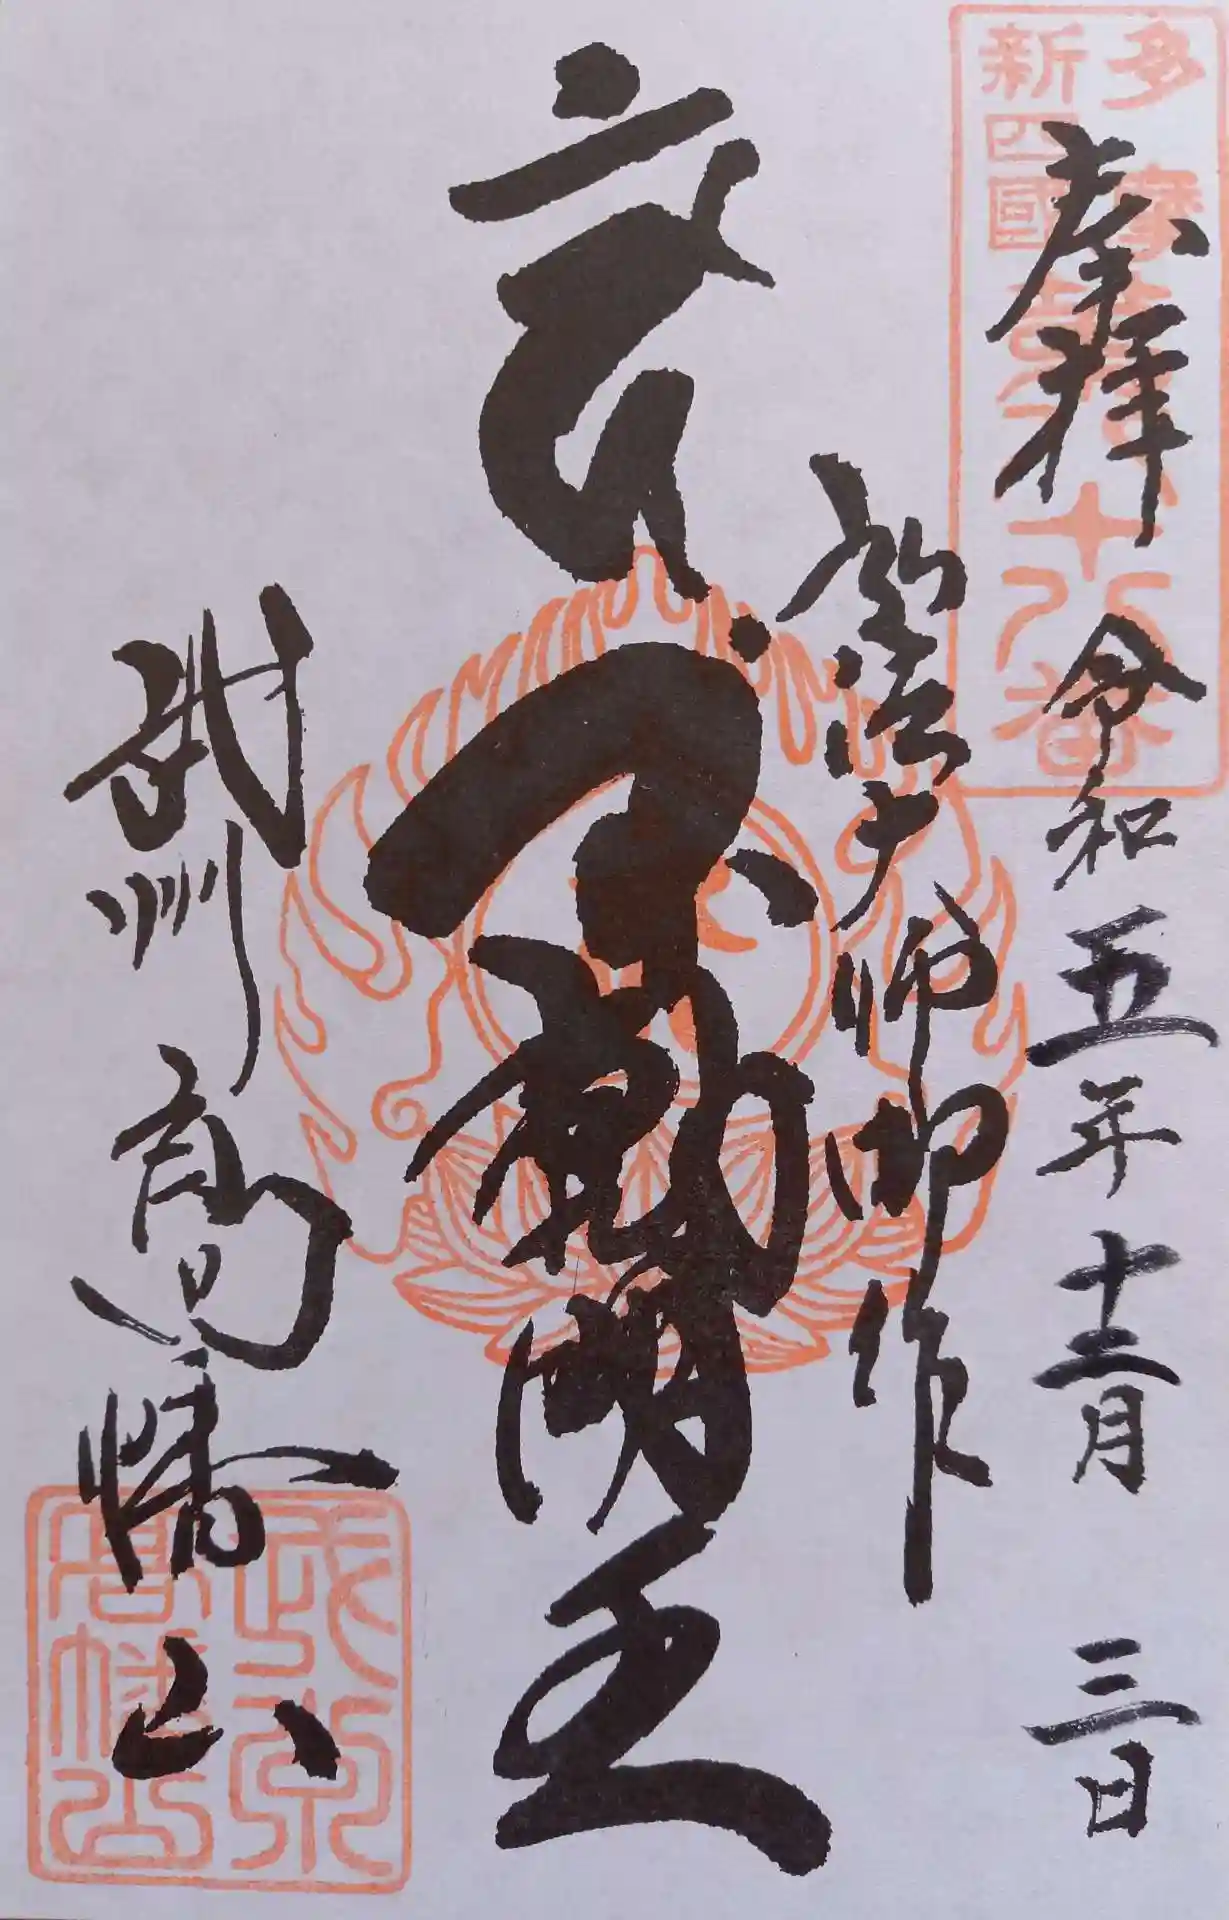 多摩
新四國
十八番
奉拝 令和五年十二月三日
弘法大師御作
不動明王
武州 高幡山
高幡山